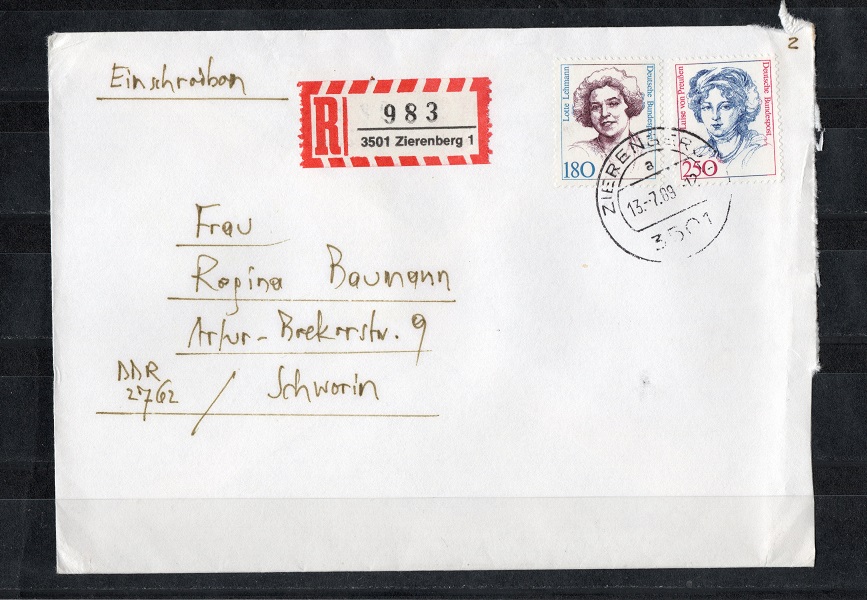 2
Einschreiben
R
983
3501 Zierenberg 1
Lotte Lehmann
Deutsche Bundespost
180
Luise von Preußen
Deutsche Bundespost
250
ZIERENBERG
a
13.-7.89.-12
3501
Frau
Regina Baumann
Artur-Beckerstr. 9
DDR
2762 / Schwerin